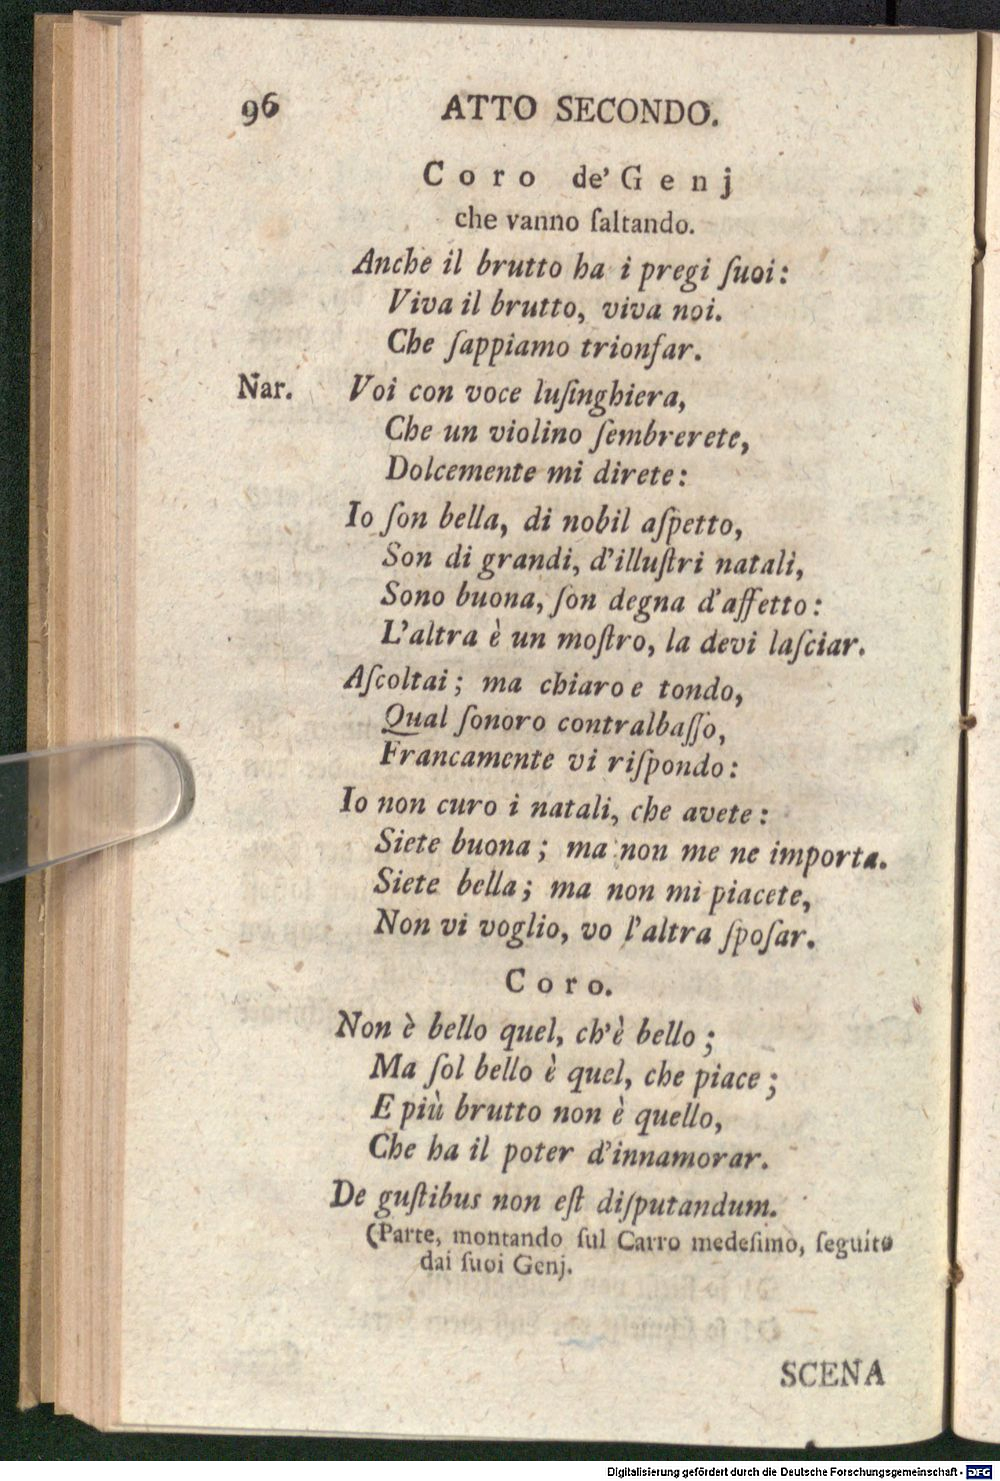 96 ATTO SECONDO.
Coro de' Genj
che vanno ſaltando.
Anche il brutto ha i pregi ſuoi:
Viva il brutto, viva noi.
Che ſappiamo trionfar.
Nar. Voi con voce luſinghiera,
Che un violino ſembrerete,
Dolcemente mi direte:
Io ſon bella, di nobil aſpetto,
Son di grandi, d'illuſtri natali,
Sono buona, ſon degna d'affetto:
L'altra è un moſtro, la devi laſciar.
Aſcoltai; ma chiaro e tondo,
Qual ſonoro contralbaſſo,
Francamente vi riſpondo:
Io non curo i natali, che avete:
Siete buona; ma non me ne importa.
Siete bella; ma non mi piacete,
Non vi voglio, vo l'altra ſpoſar.
Coro.
Non è bello quel, ch'è bello;
Ma ſol bello è quel, che piace;
E più brutto non è quello,
Che ha il poter d'innamorar.
De guſtibus non eſt diſputandum.
(Parte, montando ſul Carro medeſimo, ſeguito
dai ſuoi Genj.
SCENA
Digitalisierung gefördert durch die Deutsche Forschungsgemeinschaft - DFG